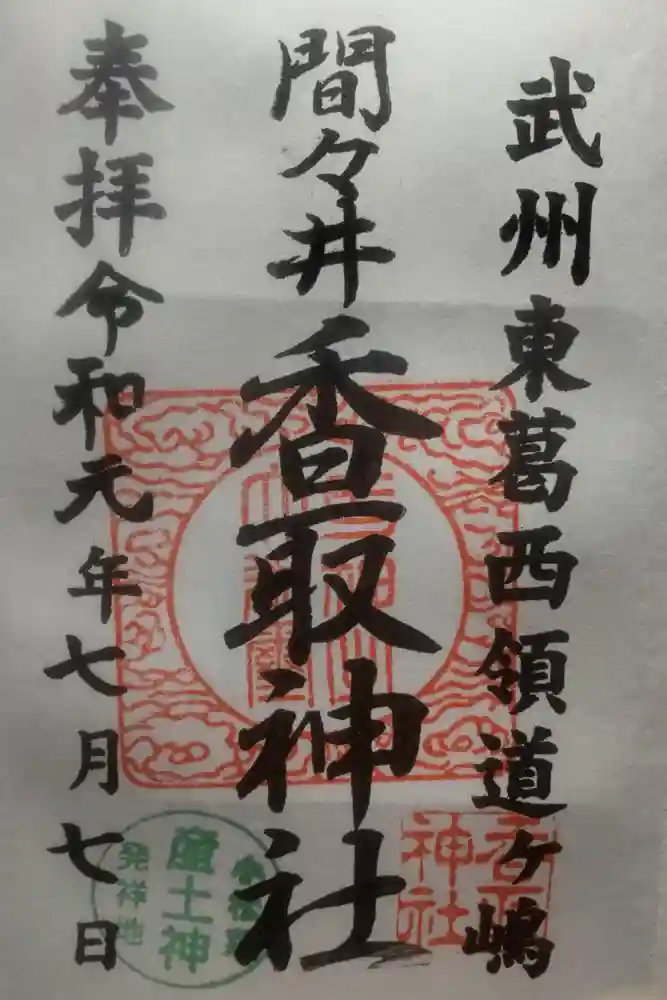 武州東葛西領道ヶ嶋
間々井香取神社
奉拝令和元年七月七日
香取
神社
小松菜
産土神
発祥地